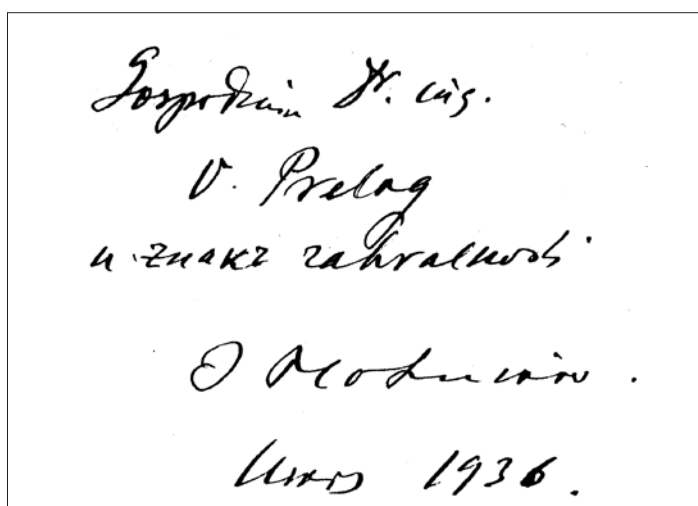 Gospodinu Dr. ing.
V. Prelog
u znakz zahvalnosti
1936.